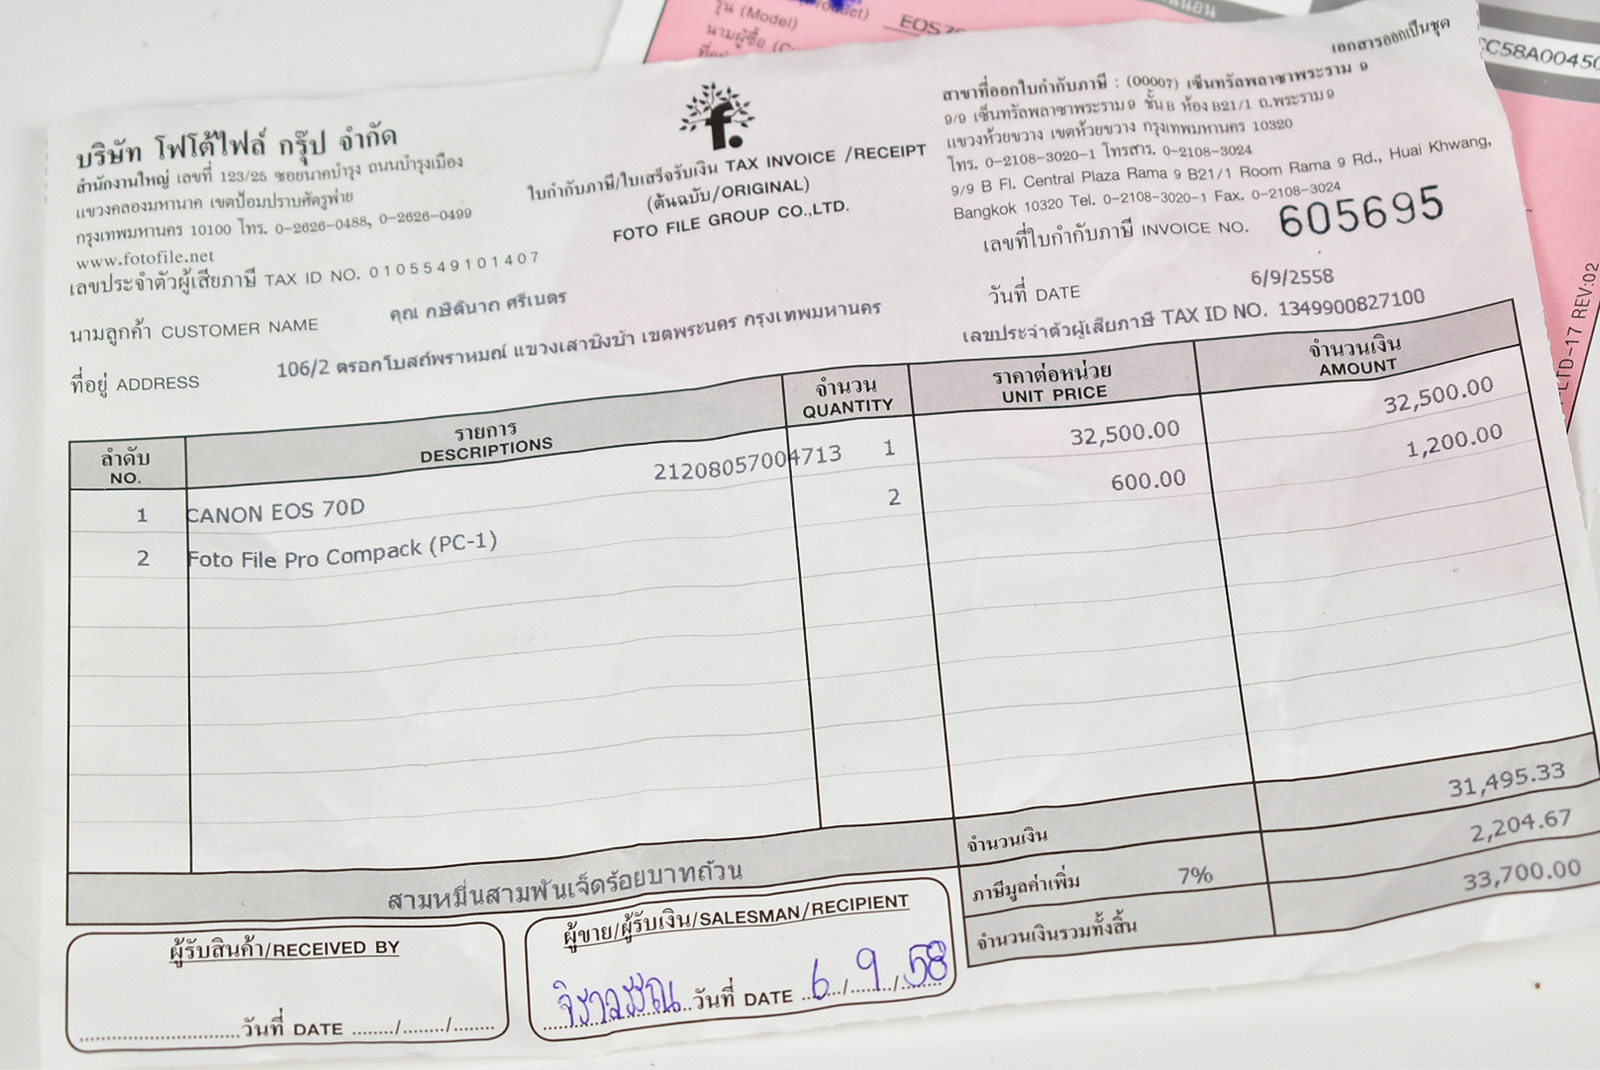 รุ่น (Model)
EOS7
นามผู้ซื้อ
CC58A00450
LTD-17 REV:02
เอกสารออกเป็นชุด
บริษัท โฟโต้ไฟล์ กรุ๊ป จำกัด
สำนักงานใหญ่ เลขที่ 123/25 ซอยนาคบำรุง ถนนบำรุงเมือง
แขวงคลองมหานาค เขตป้อมปราบศัตรูพ่าย
กรุงเทพมหานคร 10100 โทร. 0-2626-0488, 0-2626-0499
www.fotofile.net
เลขประจำตัวผู้เสียภาษี TAX ID NO. 0105549101407
f.
ใบกำกับภาษี/ใบเสร็จรับเงิน TAX INVOICE /RECEIPT
(ต้นฉบับ/ORIGINAL)
FOTO FILE GROUP CO.,LTD.
สาขาที่ออกใบกำกับภาษี : (00007) เซ็นทรัลพลาซาพระราม 9
9/9 เซ็นทรัลพลาซาพระราม 9 ชั้น B ห้อง B21/1 ถ.พระราม 9
แขวงห้วยขวาง เขตห้วยขวาง กรุงเทพมหานคร 10320
โทร. 0-2108-3020-1 โทรสาร. 0-2108-3024
9/9 B Fl. Central Plaza Rama 9 B21/1 Room Rama 9 Rd., Huai Khwang,
Bangkok 10320 Tel. 0-2108-3020-1 Fax. 0-2108-3024
เลขที่ใบกำกับภาษี INVOICE NO. 605695
วันที่ DATE 6/9/2558
นามลูกค้า CUSTOMER NAME คุณ กษิดินาถ ศรีเนตร
เลขประจำตัวผู้เสียภาษี TAX ID NO. 1349900827100
ที่อยู่ ADDRESS 106/2 ตรอกโบสถ์พราหมณ์ แขวงเสาชิงช้า เขตพระนคร กรุงเทพมหานคร
ลำดับ รายการ จำนวน ราคาต่อหน่วย จำนวนเงิน
NO. DESCRIPTIONS QUANTITY UNIT PRICE AMOUNT
1 CANON EOS 70D 21208057004713 1 32,500.00 32,500.00
2 Foto File Pro Compack (PC-1) 2 600.00 1,200.00
จำนวนเงิน 31,495.33
ภาษีมูลค่าเพิ่ม 7% 2,204.67
จำนวนเงินรวมทั้งสิ้น 33,700.00
สามหมื่นสามพันเจ็ดร้อยบาทถ้วน
ผู้รับสินค้า/RECEIVED BY
วันที่ DATE ......../......../........
ผู้ขาย/ผู้รับเงิน/SALESMAN/RECIPIENT
จิราวรรณ วันที่ DATE 6/9/58